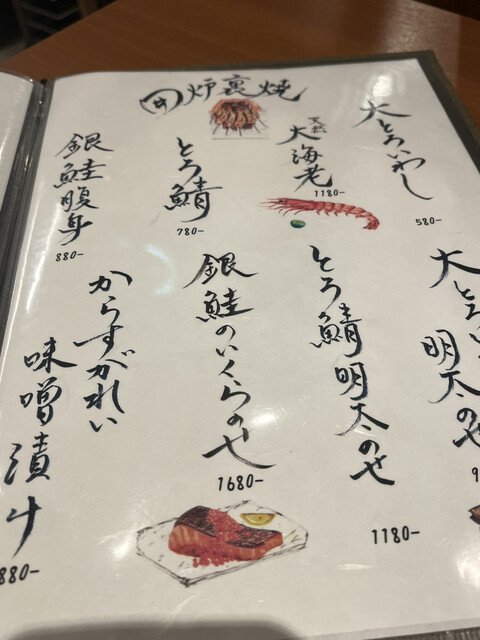 炉裏焼
大とろいわし
580-
天然
大海老
1180-
とろ鯖
780-
銀鮭腹身
880-
大とろい
明太のせ
9
とろ鯖明太のせ
1180-
銀鮭のいくらのせ
1680-
からすがれい
味噌漬け
880-